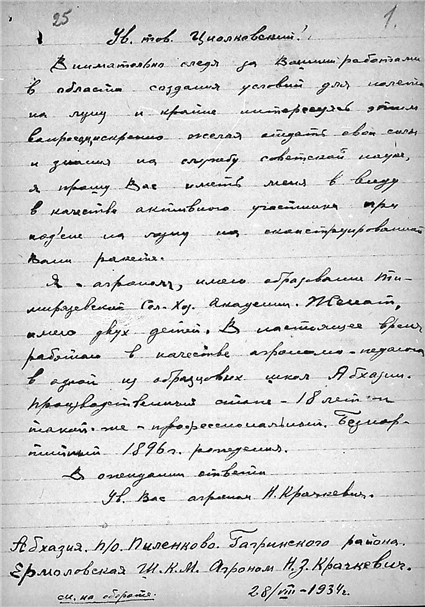 25
1.
Ув. тов. Циолковский!
Внимательно следя за Вашими работами
в области создания условий для полета
на луну и крайне интересуясь этим
вопросом искренно желая отдать свои силы
и знания на службу советской науке,
я прошу Вас иметь меня в виду
в качестве активного участника при
под'еме на луну на сконструированной
Вами ракете.
Я - агроном, имею образование Ти-
мирязевской Сел-Хоз. Академии. Женат,
имею двух детей. В настоящее время
работаю в качестве агронома-педагога
в одной из образцовых школ Абхазии.
Производственный стаж - 18 лет и
такой-же - профессиональный. Безпар-
тийный 1896 г. рождения.
В ожидании ответа
Ув. Вас агроном Н. Крачкевич.
Абхазия. п/о. Пиленково. Гагринского района.
Ермоловская Ш.К.М. Агроном Н.З. Крачкевич.
см. на обороте.
28/VIII - 1934 г.